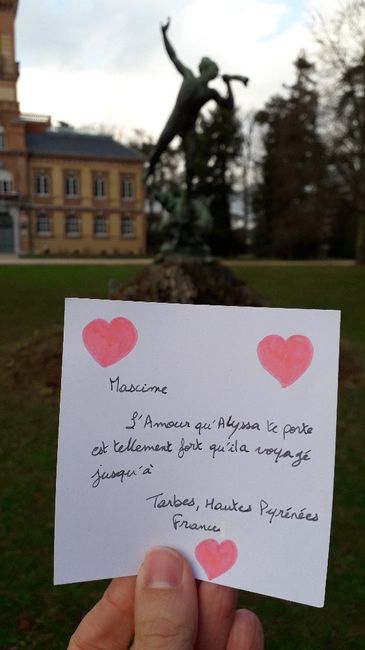 Mascime
L'Amour qu'Alyssa te porte
est tellement fort qu'il a voyagé
jusqu'à
Tarbes, Hautes Pyrénées
France